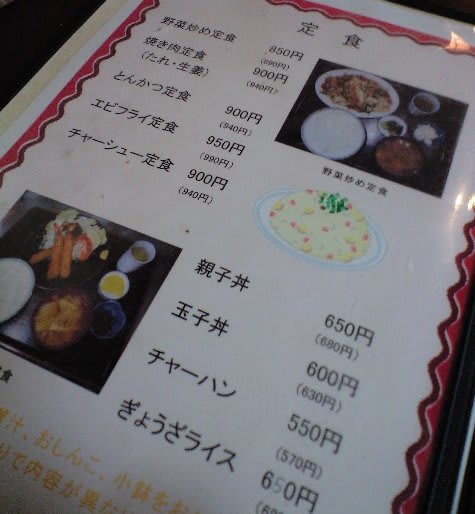 定食
野菜炒め定食 850円
(890円)
焼き肉定食 900円
(たれ・生姜) (940円)
とんかつ定食 900円
(940円)
エビフライ定食 950円
(990円)
チャーシュー定食 900円
(940円)
野菜炒め定食
親子丼 650円
(680円)
玉子丼 600円
(630円)
チャーハン 550円
(570円)
ぎょうざライス 650円
食
汁、おしんこ、小鉢をお
で内容が異な